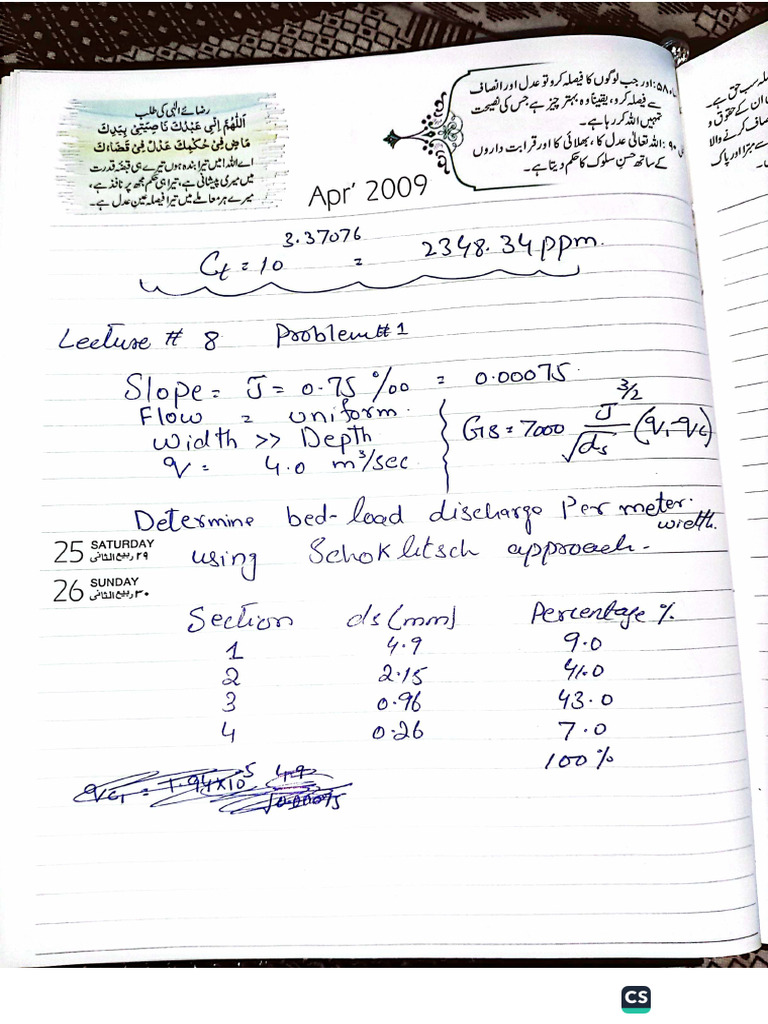 رضائے الٰہی کی طلب
اَللّٰهُمَّ اِنِّي عَبْدُكَ نَاصِيَتِيْ بِيَدِكَ
مَاضٍ فِيَّ حُكْمُكَ عَدْلٌ فِيَّ قَضَاءُكَ
اے اللہ! میں تیرا بندہ ہوں تیرے ہی قبضہ قدرت
میں میری پیشانی ہے، تیرا ہی حکم مجھ پر نافذ ہے،
میرے ہر معاملے میں تیرا فیصلہ عین عدل ہے۔
۵۸: اور جب لوگوں کا فیصلہ کرو تو عدل اور انصاف
سے فیصلہ کرو، یقیناً وہ بہتر چیز ہے جس کی نصیحت
تمہیں اللہ کر رہا ہے۔
۹۰: اللہ تعالیٰ عدل کا، بھلائی کا اور قرابت داروں
کے ساتھ حسن سلوک کا حکم دیتا ہے۔
Apr' 2009
Ct = 10^3.37076 = 2348.34 ppm.
Lecture # 8 Problem # 1
Slope = J = 0.75 ‰ = 0.00075.
Flow = uniform.
Width >> Depth
q = 4.0 m³/sec
GB = 7000 J^3/2 / √ds (q - qc)
Determine bed-load discharge Per meter. width.
25 SATURDAY ۲۹ ربیع الثانی
using Schoklitsch approach-
26 SUNDAY ۳۰ ربیع الثانی
Section ds (mm) Percentage %
1 4.9 9.0
2 2.15 41.0
3 0.96 43.0
4 0.26 7.0
100 %
CS